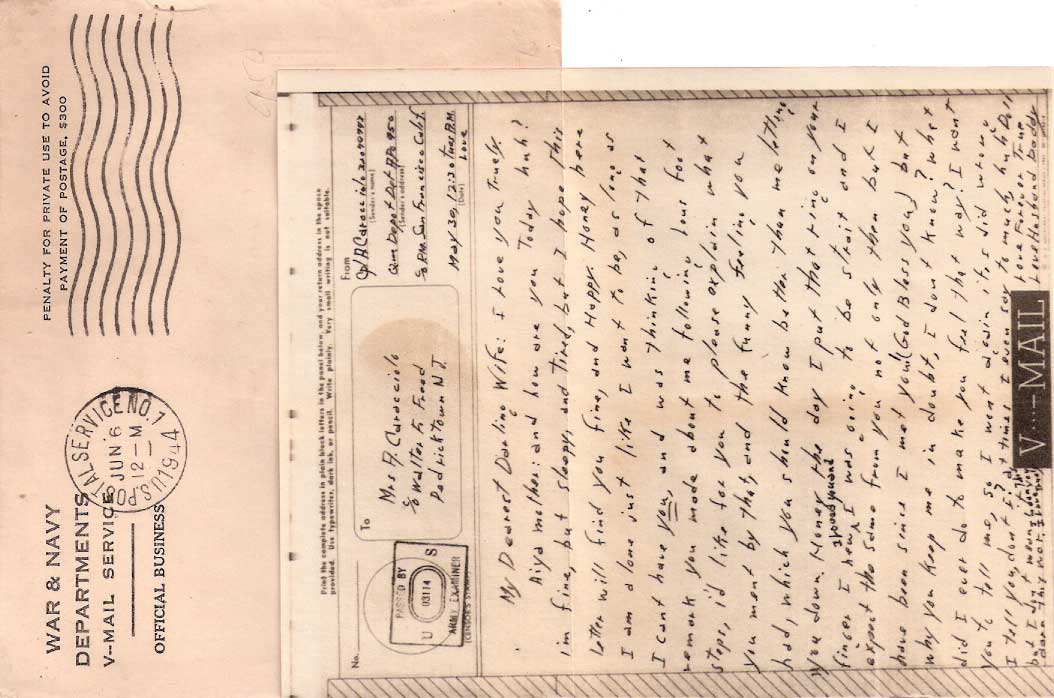 WAR & NAVY
DEPARTMENTS
V--MAIL SERVICE
OFFICIAL BUSINESS
U.S. POSTAL SERVICE NO. 1
JUN 6
12-M
1944
PENALTY FOR PRIVATE USE TO AVOID
PAYMENT OF POSTAGE, $300
Print the complete address in plain block letters in the panel below, and your return address in the space
provided. Use typewriter, dark ink, or pencil. Write plainly. Very small writing is not suitable.
No.
PASSED BY
U 03114 S
ARMY EXAMINER
(CENSOR'S STAMP)
To
Mrs A. Caracciolo
c/o Walter F. Freed
Pedricktown N.J.
From
(Sender's name)
Qm Depot Det APO 950
(Sender's address)
c/o P.M. San Francisco Calif.
May 30, 12:30 Tues P.M.
(Date)
Love
My Dearest Darling Wife: I Love you Truely.
Aiya mother: and how are you Today huh?
im fine, but sleepy, and tired, but I hope This
Letter will find you fine, and Happy. Honey here
I am alone just like I want to be, as long as
I cant have you, and was thinking of that
remark you made about me following Lous foot
steps, id like for you to please explain what
you ment by that, and the funny feeling you
had, which you should know better than me letting
you down, Honey the day I put that ring on your
finger I knew I was going to be strait and I
expect the same from you not only then But I
have been since I met you! (God Bless you) but
why you keep me in doubt, I dont Know? what
did I ever do to make you feel that way? I want
you to tell me, so I wont again its did wrong
I tell you, dont I? at times I even say to much, huh Doll
but I
Love Forever True
Love Husband Daddy
V···—MAIL